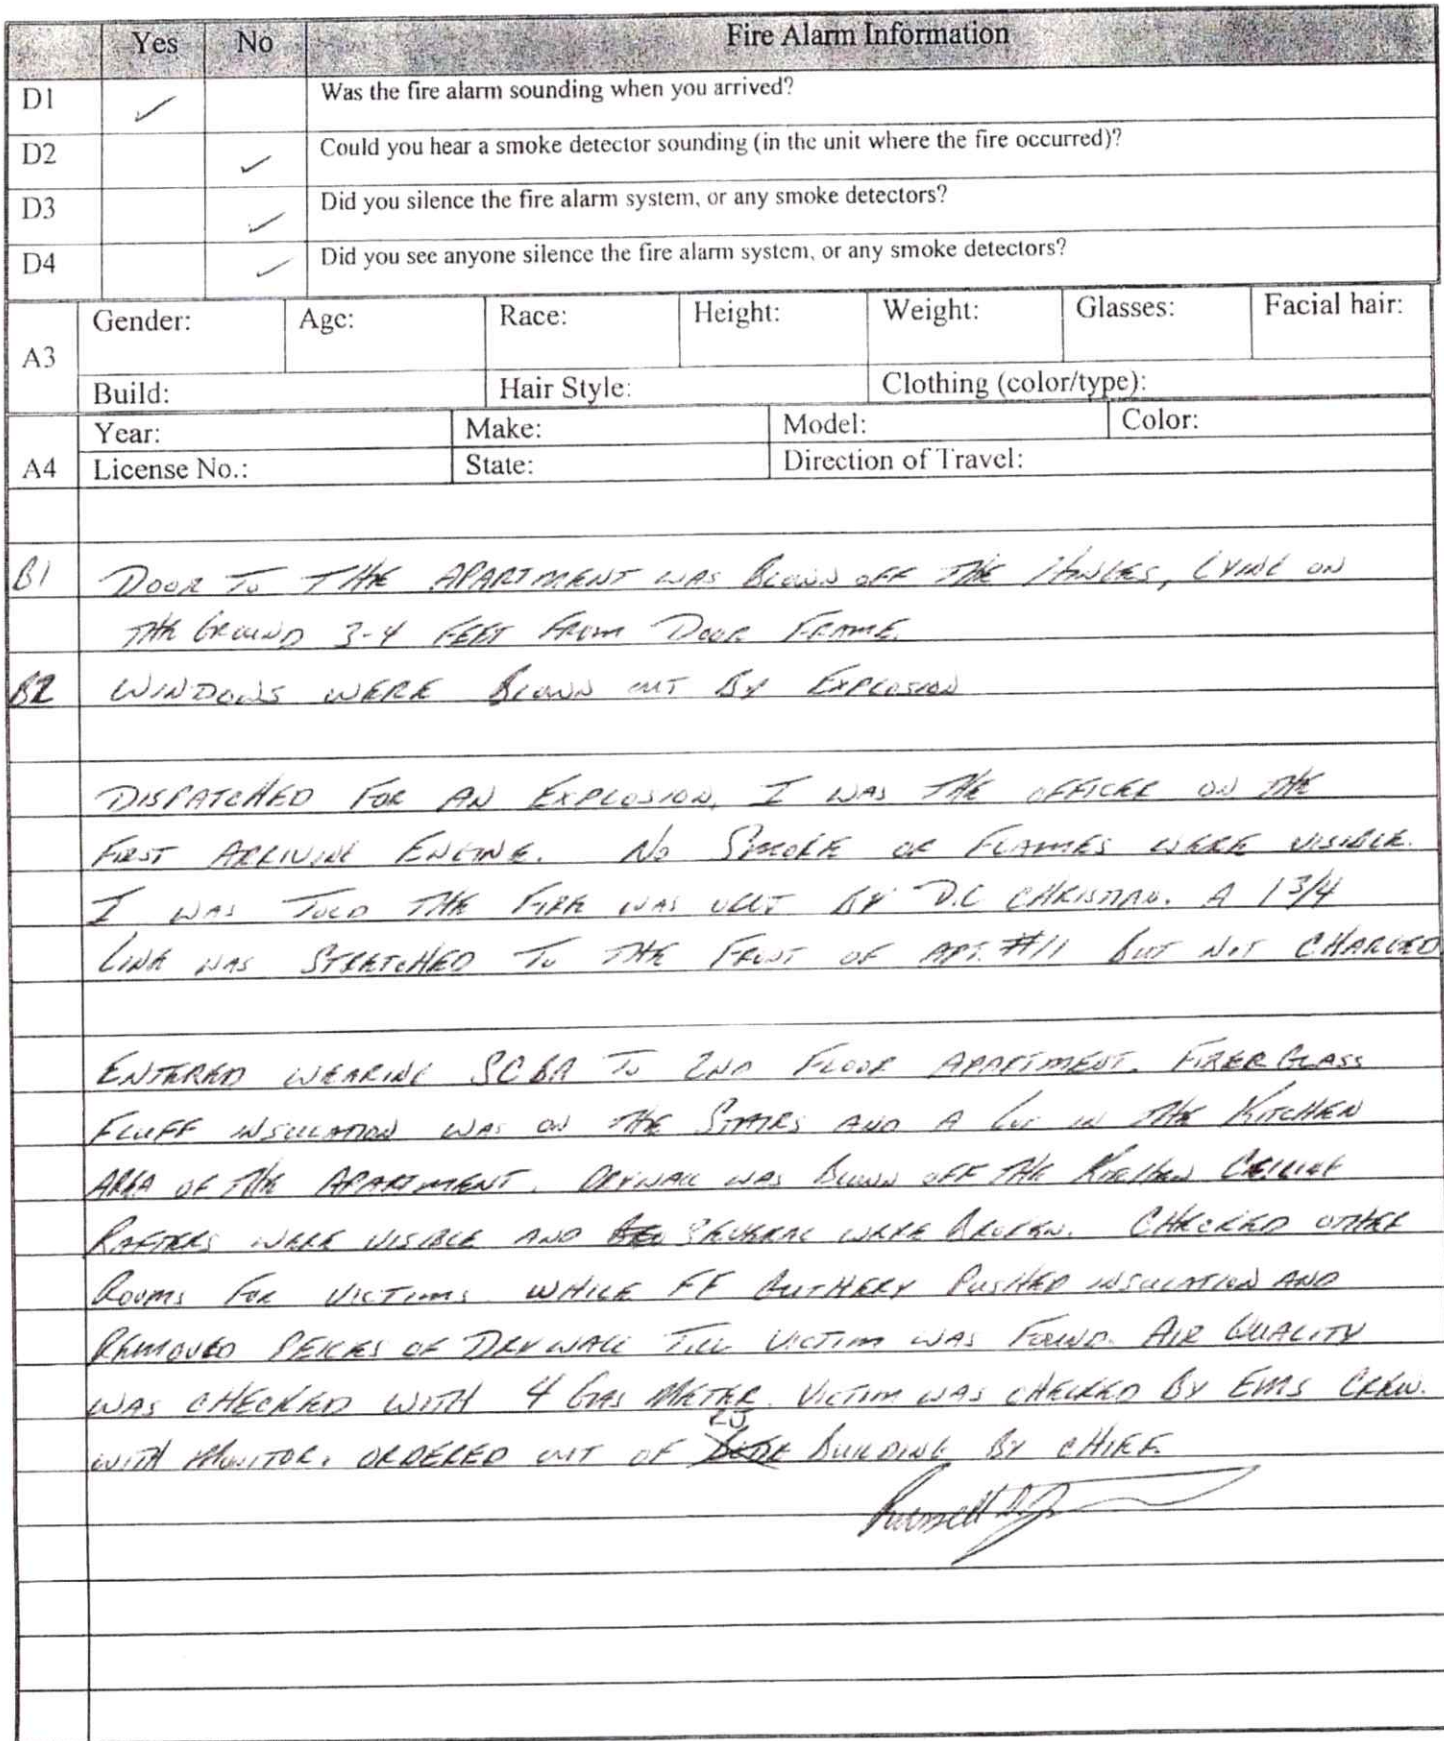 Yes No Fire Alarm Information
D1 ✓ Was the fire alarm sounding when you arrived?
D2 ✓ Could you hear a smoke detector sounding (in the unit where the fire occurred)?
D3 ✓ Did you silence the fire alarm system, or any smoke detectors?
D4 ✓ Did you see anyone silence the fire alarm system, or any smoke detectors?
A3 Gender: Age: Race: Height: Weight: Glasses: Facial hair:
Build: Hair Style: Clothing (color/type):
A4 Year: Make: Model: Color:
License No.: State: Direction of Travel:
B1 DOOR TO THE APARTMENT WAS BLOWN OFF THE HINGES, LYING ON
THE GROUND 3-4 FEET FROM DOOR FRAME.
B2 WINDOWS WERE BLOWN OUT BY EXPLOSION
DISPATCHED FOR AN EXPLOSION, I WAS THE OFFICER ON THE
FIRST ARRIVING ENGINE. NO SMOKE OR FLAMES WERE VISIBLE.
I WAS TOLD THE FIRE WAS OUT BY D.C CHRISMAN. A 1 3/4
LINE WAS STRETCHED TO THE FRONT OF APT. #11 BUT NOT CHARGED
ENTERED WEARING SCBA TO 2ND FLOOR APARTMENT. FIBERGLASS
FLUFF INSULATION WAS ON THE STAIRS AND A LOT IN THE KITCHEN
AREA OF THE APARTMENT. DRYWALL WAS BLOWN OFF THE KITCHEN CEILING
RAFTERS WERE VISIBLE AND SEVERAL WERE BROKEN. CHECKED OTHER
ROOMS FOR VICTIMS WHILE FF PUSHED INSULATION AND
REMOVED PEICES OF DRYWALL TILL VICTIM WAS FOUND. AIR QUALITY
WAS CHECKED WITH 4 GAS METER. VICTIM WAS CHECKED BY EMS CREW.
WITH MONITOR. ORDERED OUT OF BUILDING BY CHIEF.